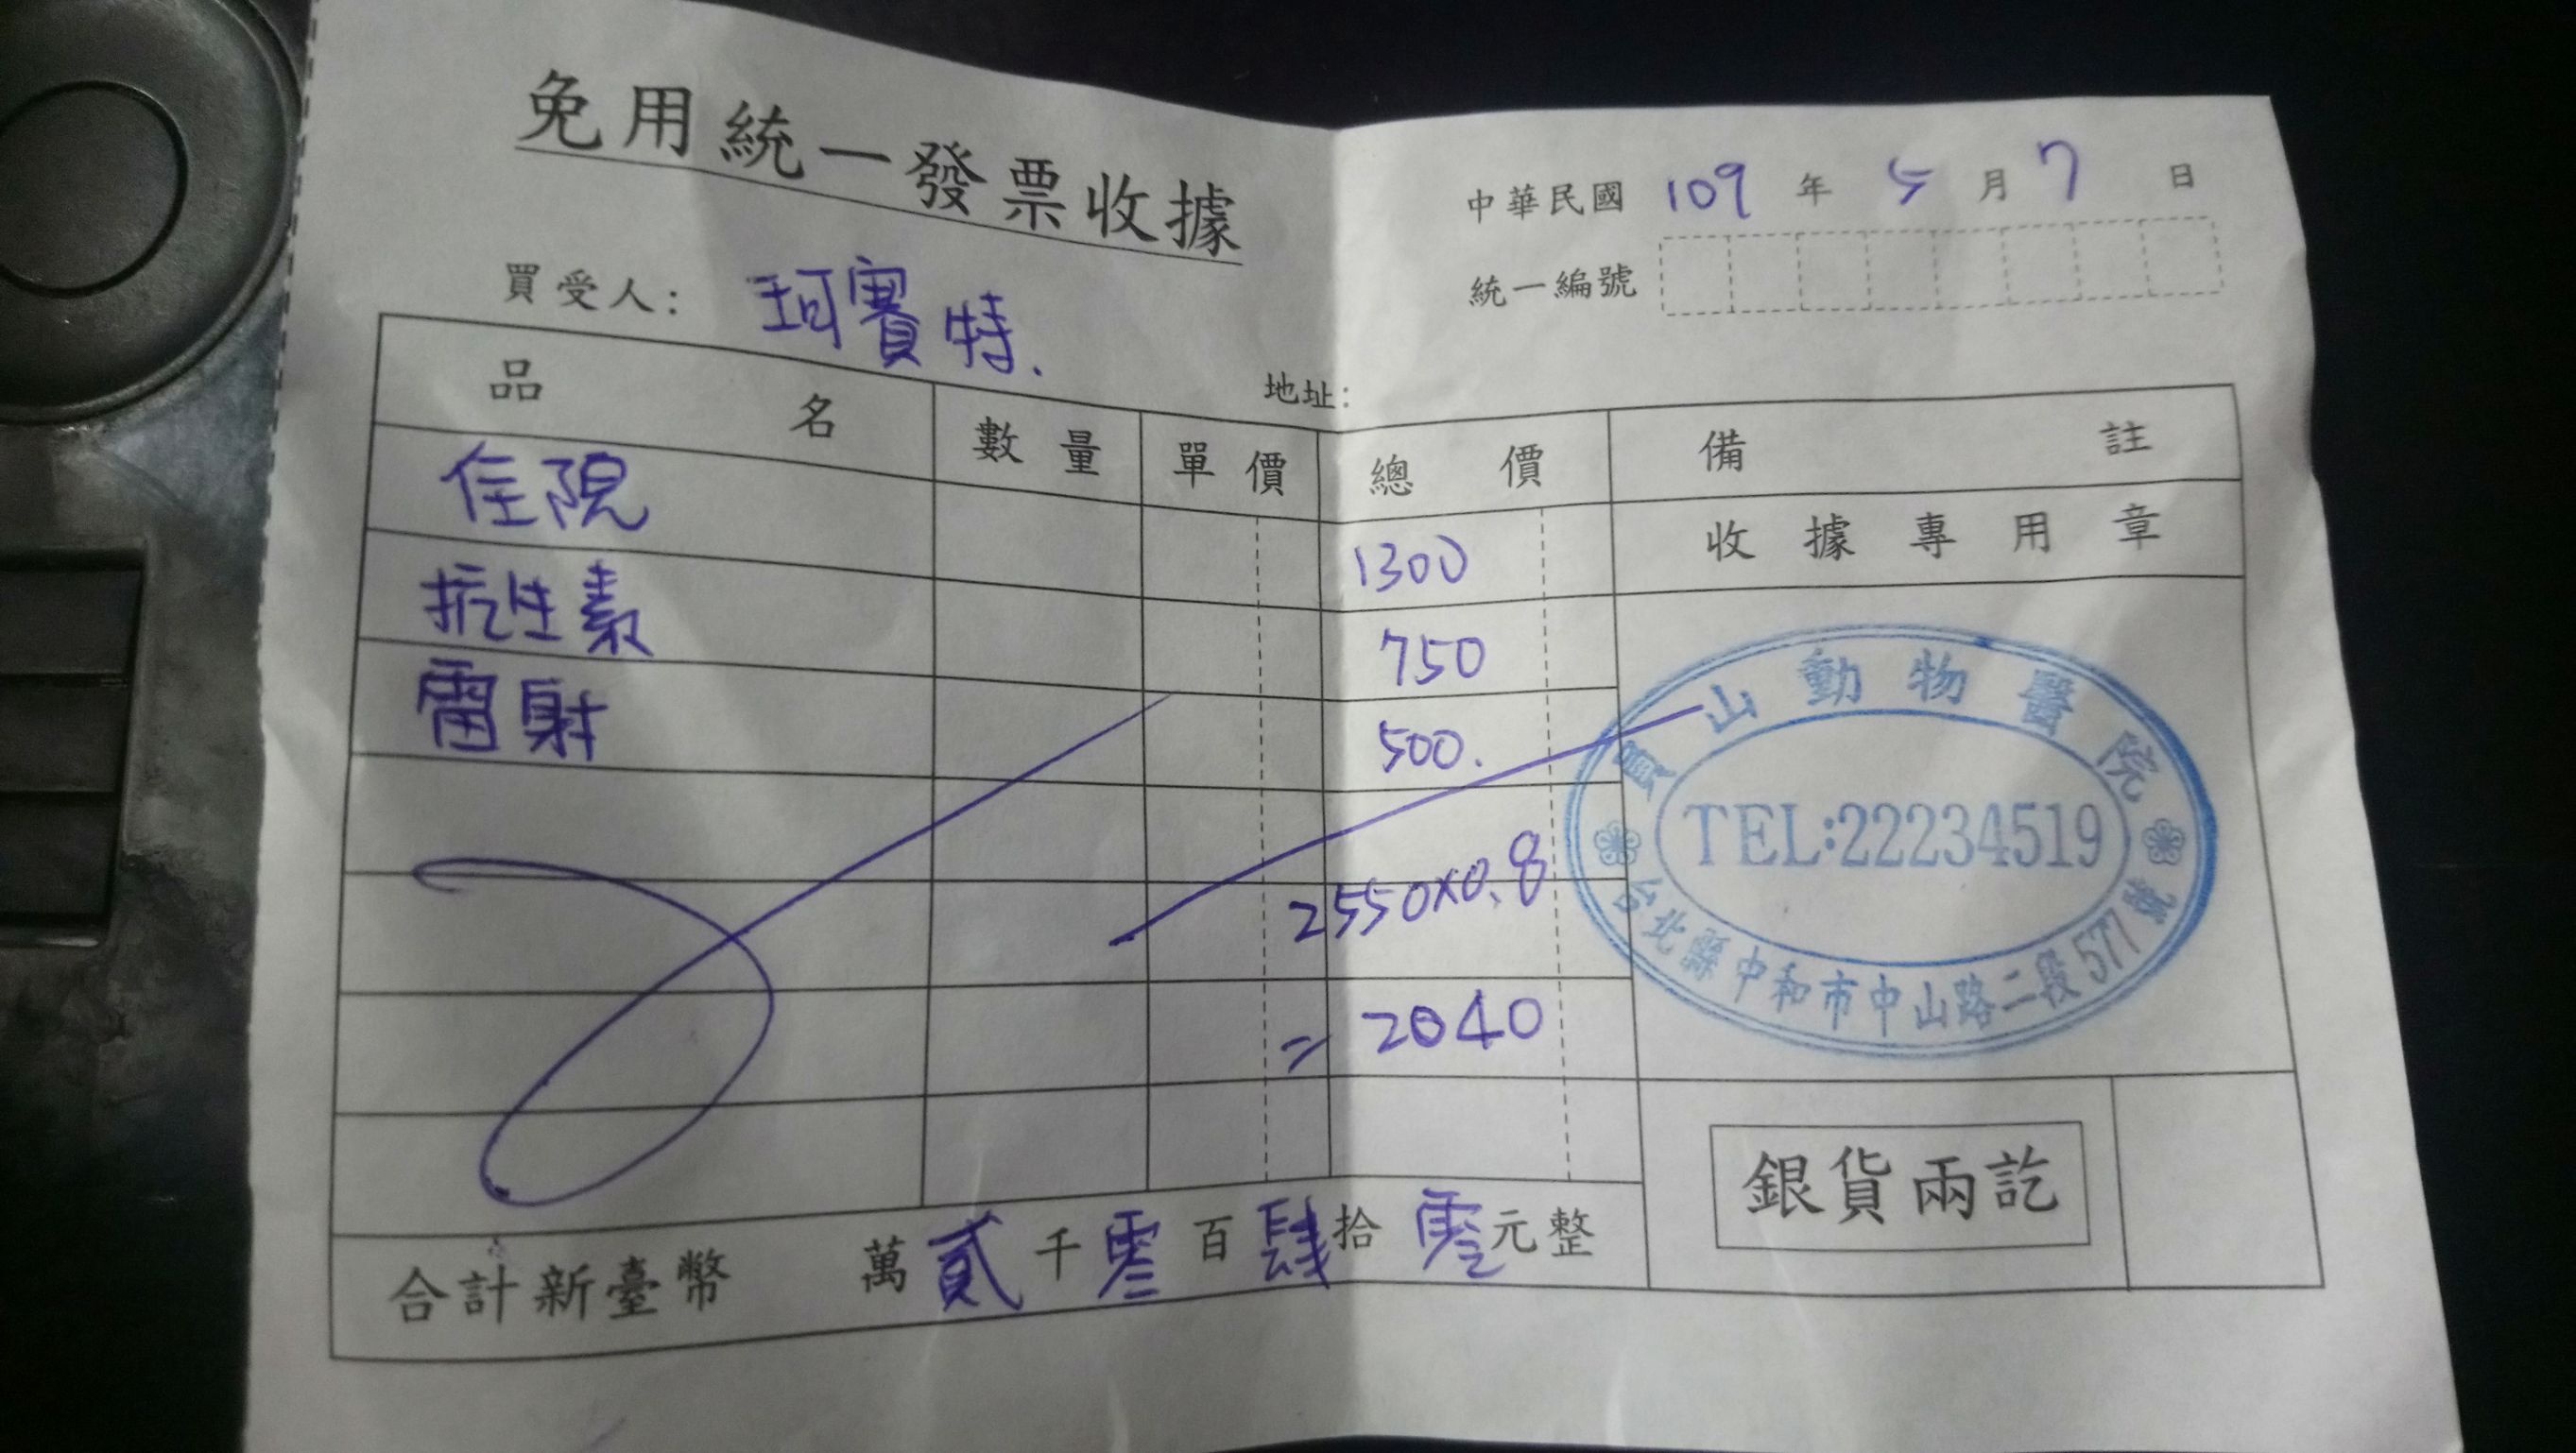 免用統一發票收據
中華民國 109 年 5 月 7 日
統一編號
買受人： 珂賽特.
地址：
品名 數量 單價 總價 備註
收據專用章
住院 1300
抗生素 750
雷射 500.
2550×0.8
= 2040
山動物醫院
TEL:22234519
台北縣中和市中山路二段577號
合計新臺幣 萬貳千零百肆拾零元整
銀貨兩訖